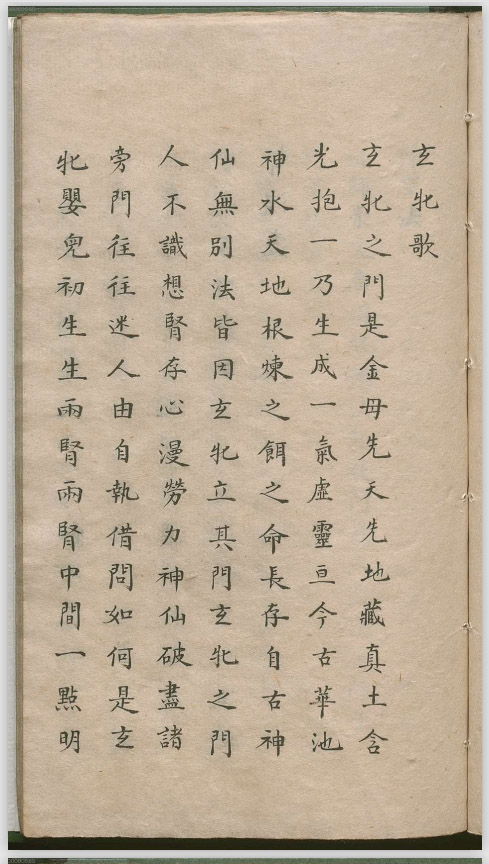 玄牝歌
玄牝之門是金母先天先地藏真土含
光抱一乃生成一氣虛靈亘今古華池
神水天地根煉之餌之命長存自古神
仙無別法皆因玄牝立其門玄牝之門
人不識想腎存心漫勞力神仙破盡諸
旁門往往迷人由自執借問如何是玄
牝嬰兒初生生兩腎兩腎中間一點明